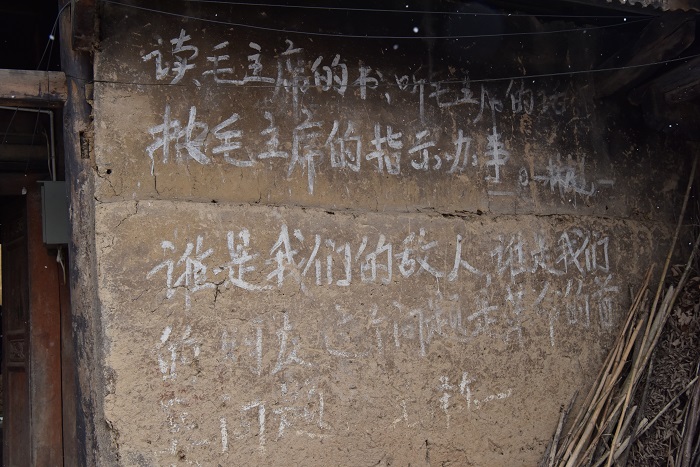 读毛主席的书,听毛主席的话
按毛主席的指示办事
谁是我们的敌人,谁是我们
的朋友这个问题是革命的首
要问题